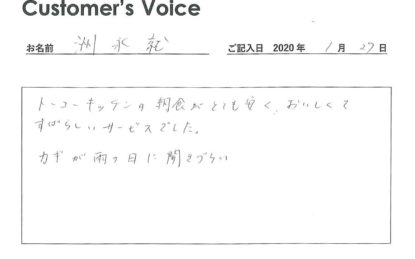 Customer's Voice
お名前 洲永 就 ご記入日 2020年 1月 27日
トーコーキッチンの朝食がとても安く、おいしくて
すばらしいサービスでした。
カギが雨の日に開きづらい